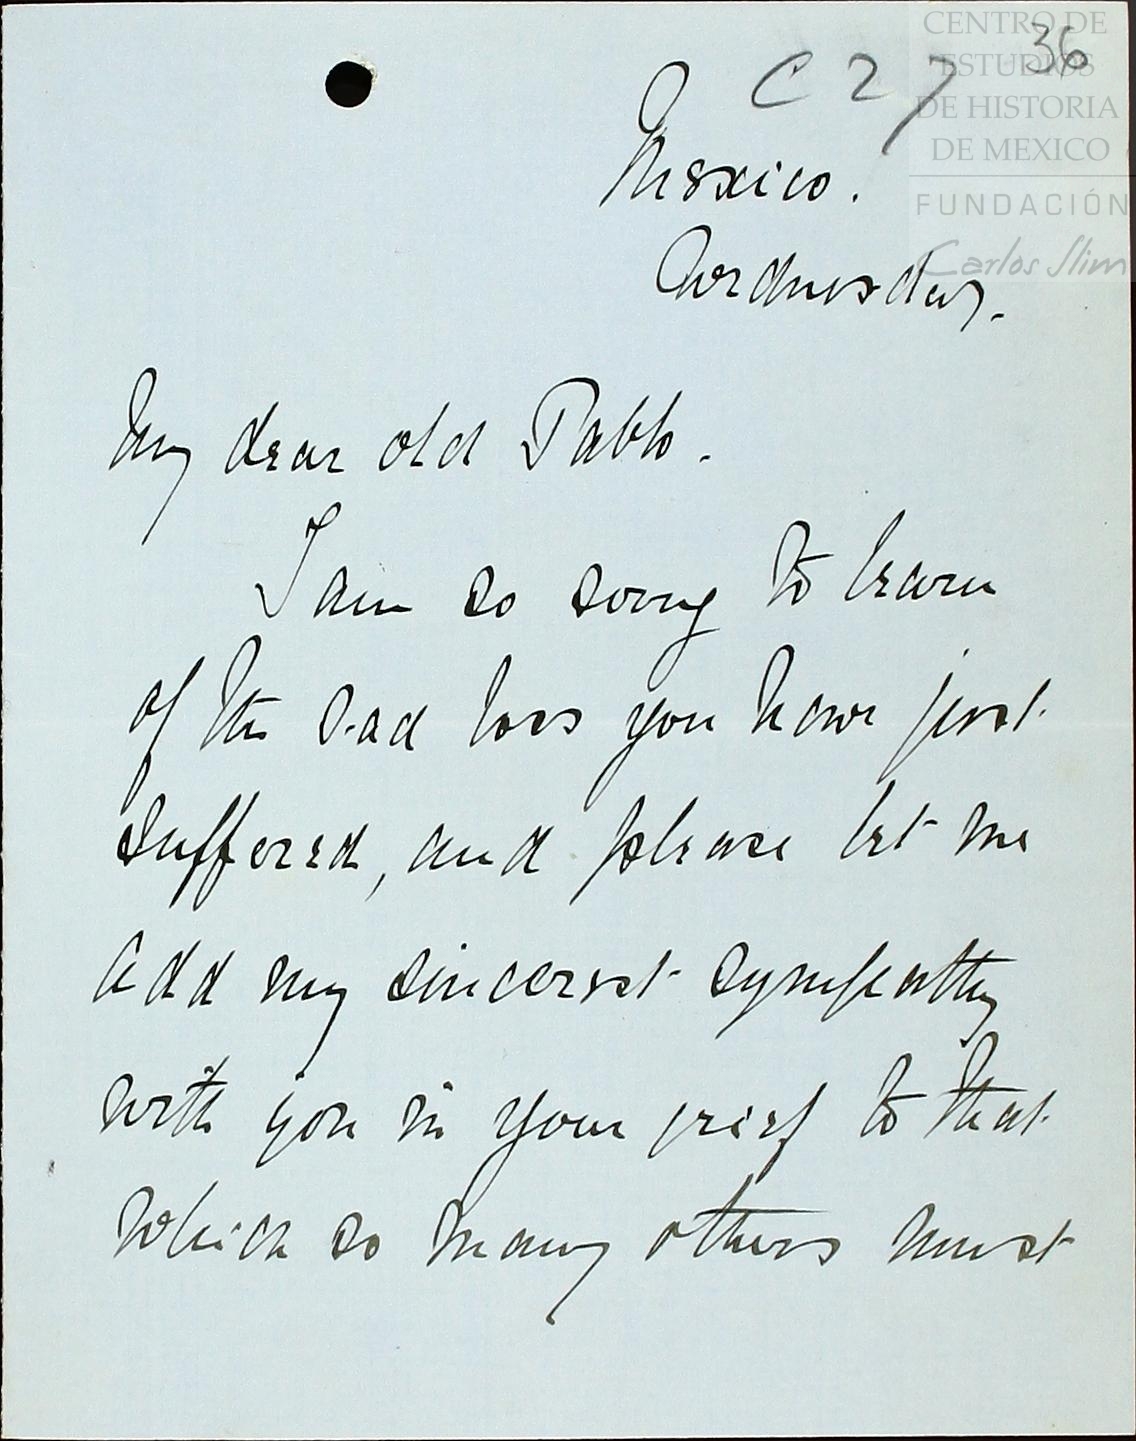 CENTRO DE
ESTUDIOS
DE HISTORIA
DE MEXICO
FUNDACIÓN
Carlos Slim
36
C 27
Mexico.
Wednesday.
My dear old Pablo.
I am so sorry to learn
of the sad loss you have just
suffered, and please let me
add my sincerest sympathy
with you in your grief to that
which so many others must